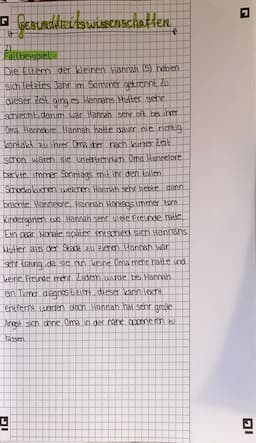 Gesundheitswissenschaften
2)
Fallbeispiel:
Die Eltern der kleinen Hannah (5) haben
sich letztes Jahr im Sommer getrennt. Zu
dieser Zeit ging es Hannahs Mutter sehr
schlecht, darum war Hannah sehr oft bei ihrer
Oma Hannelore. Hannah hatte davor nie richtig
kontakt zu ihrer Oma aber nach kurzer Zeit
schon waren sie unzertrennlich. Oma Hannelore
backte immer Sonntags mit ihr den tollen
Schokokuchen welchen Hannah sehr liebte dann
brachte Hannelore, Hannah Montags immer zum
Kindergarten wo Hannah sehr viele Freunde hatte.
Ein paar Monate später entschied sich Hannahs
Mutter aus der Stadt zu ziehen. Hannah war
sehr traurig, da sie nun keine Oma mehr hatte und
keine Freunde mehr. Zudem wurde bei Hannah
ein Tumor diagnostiziert, dieser kann leicht
entfernt werden doch Hannah hat sehr große
Angst sich ohne Oma in der nähe operieren zu
lassen.